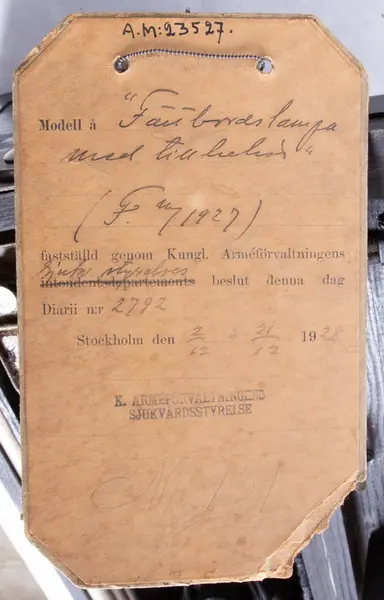 A.M:23527.
Modell å "Fältbordslampa
med tillbehör"
(F. m/1927)
fastställd genom Kungl. Arméförvaltningens
Sjukv. styrelses
intendentsdepartements beslut denna dag
Diarii n:r 2792
Stockholm den 2/12 21/12 1928
K. ARMÉFÖRVALTNINGENS
SJUKVÅRDSSTYRELSE